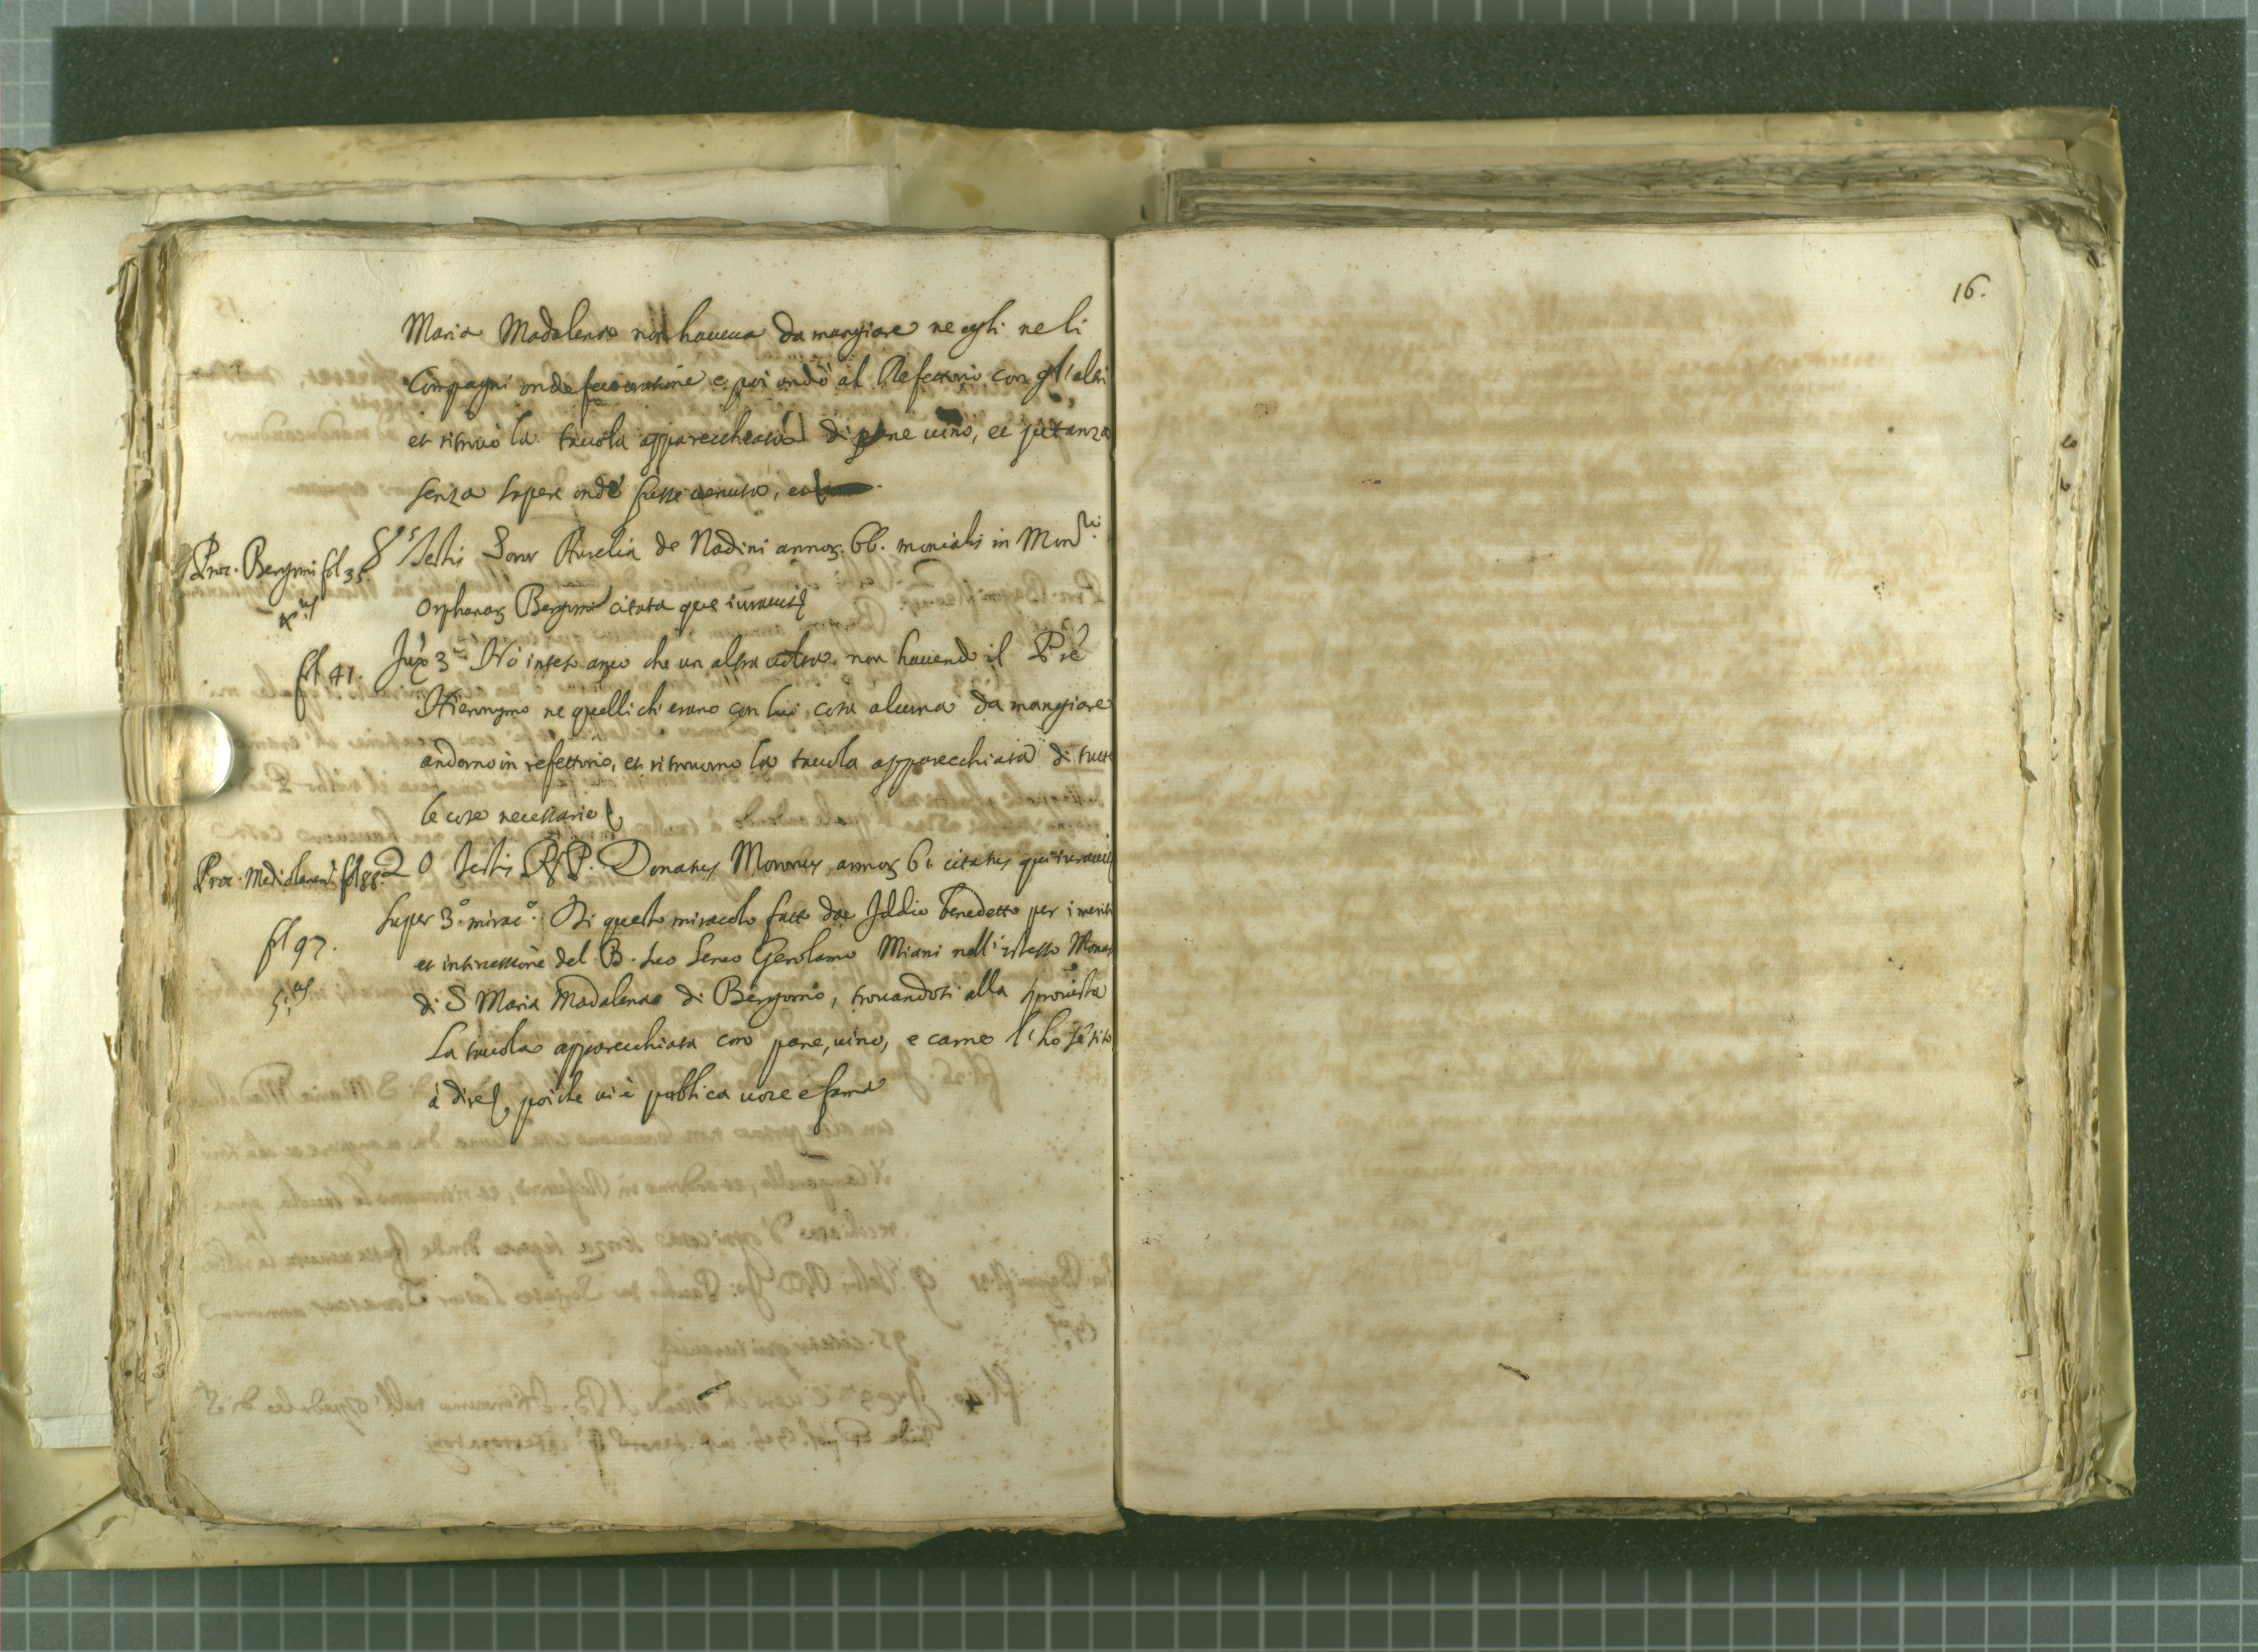 16.
Maria Madalena non haueua da mangiare ne egli ne li
Compagni onde fece oratione e poi andò al Refettorio con gl'altri
et ritrouò la tauola apparecchiata di pane uino, et pitanza
senza sapere onde fusse uenuta, et
Proc. Bergomi fol 35. 8us Testis Soror Aurelia de Nadini annor. 66. monialis in Monrii
4us
Orphanar. Bergomi citata que iurauit
fol 41. Jux 3m Hò inteso anco che un altra uolta non hauendo il Pre
Hieronymo ne quelli ch' erano con lui cosa alcuna da mangiare
andorno in refettorio, et ritrouorno la tauola apparecchiata di tutte
le cose necessarie
Proc. Mediolanen. fol 88. 20 Testis R. P. Donatus Moronus annor. 61 citatus qui iurauit
fol 97. Super 3o. mirac.o Di questo miracolo fatto da Iddio benedetto per i meriti
et intircessione del B. suo Seruo Gerolamo Miani nell' istesso Monas
5us
di S Maria Madalena di Bergomo, trouandosi alla sprouista
La tauola apparecchiata con pane, uino, e carne l' ho sētito
à dire, poiche ui è publica uoce e fama